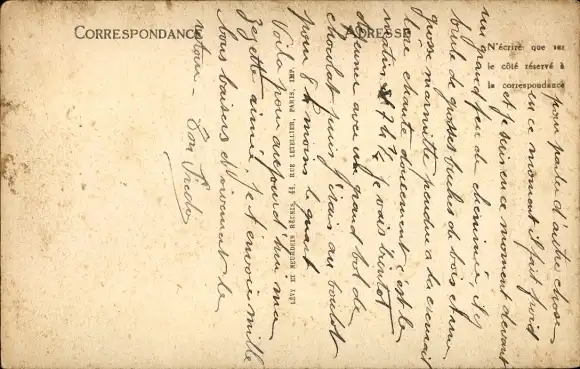 CORRESPONDANCE
ADRESSE
N'écrire que sur
le côté réservé à
la correspondance
LÉVY ET NEURDEIN RÉUNIS, 44, RUE LETELLIER, PARIS, IMP.
pour parler d'autre chose
en ce moment il fait froid
et je suis en ce moment devant
un grand feu de cheminée, il y
brule de grosses buches de bois et une
grosse marmitte pendue a la cremail
lere chante doucement c'est le
matin 7 h ½ je vais bientot
dejeuner avec un grand bol de
chocolat puis j'irais au boulot
pour 8 h moins le quart
Voila pour aujourd'hui ma
Zezette aimée je t'envoie mille
bons baisers et vivement le
retour - Ton Fredo